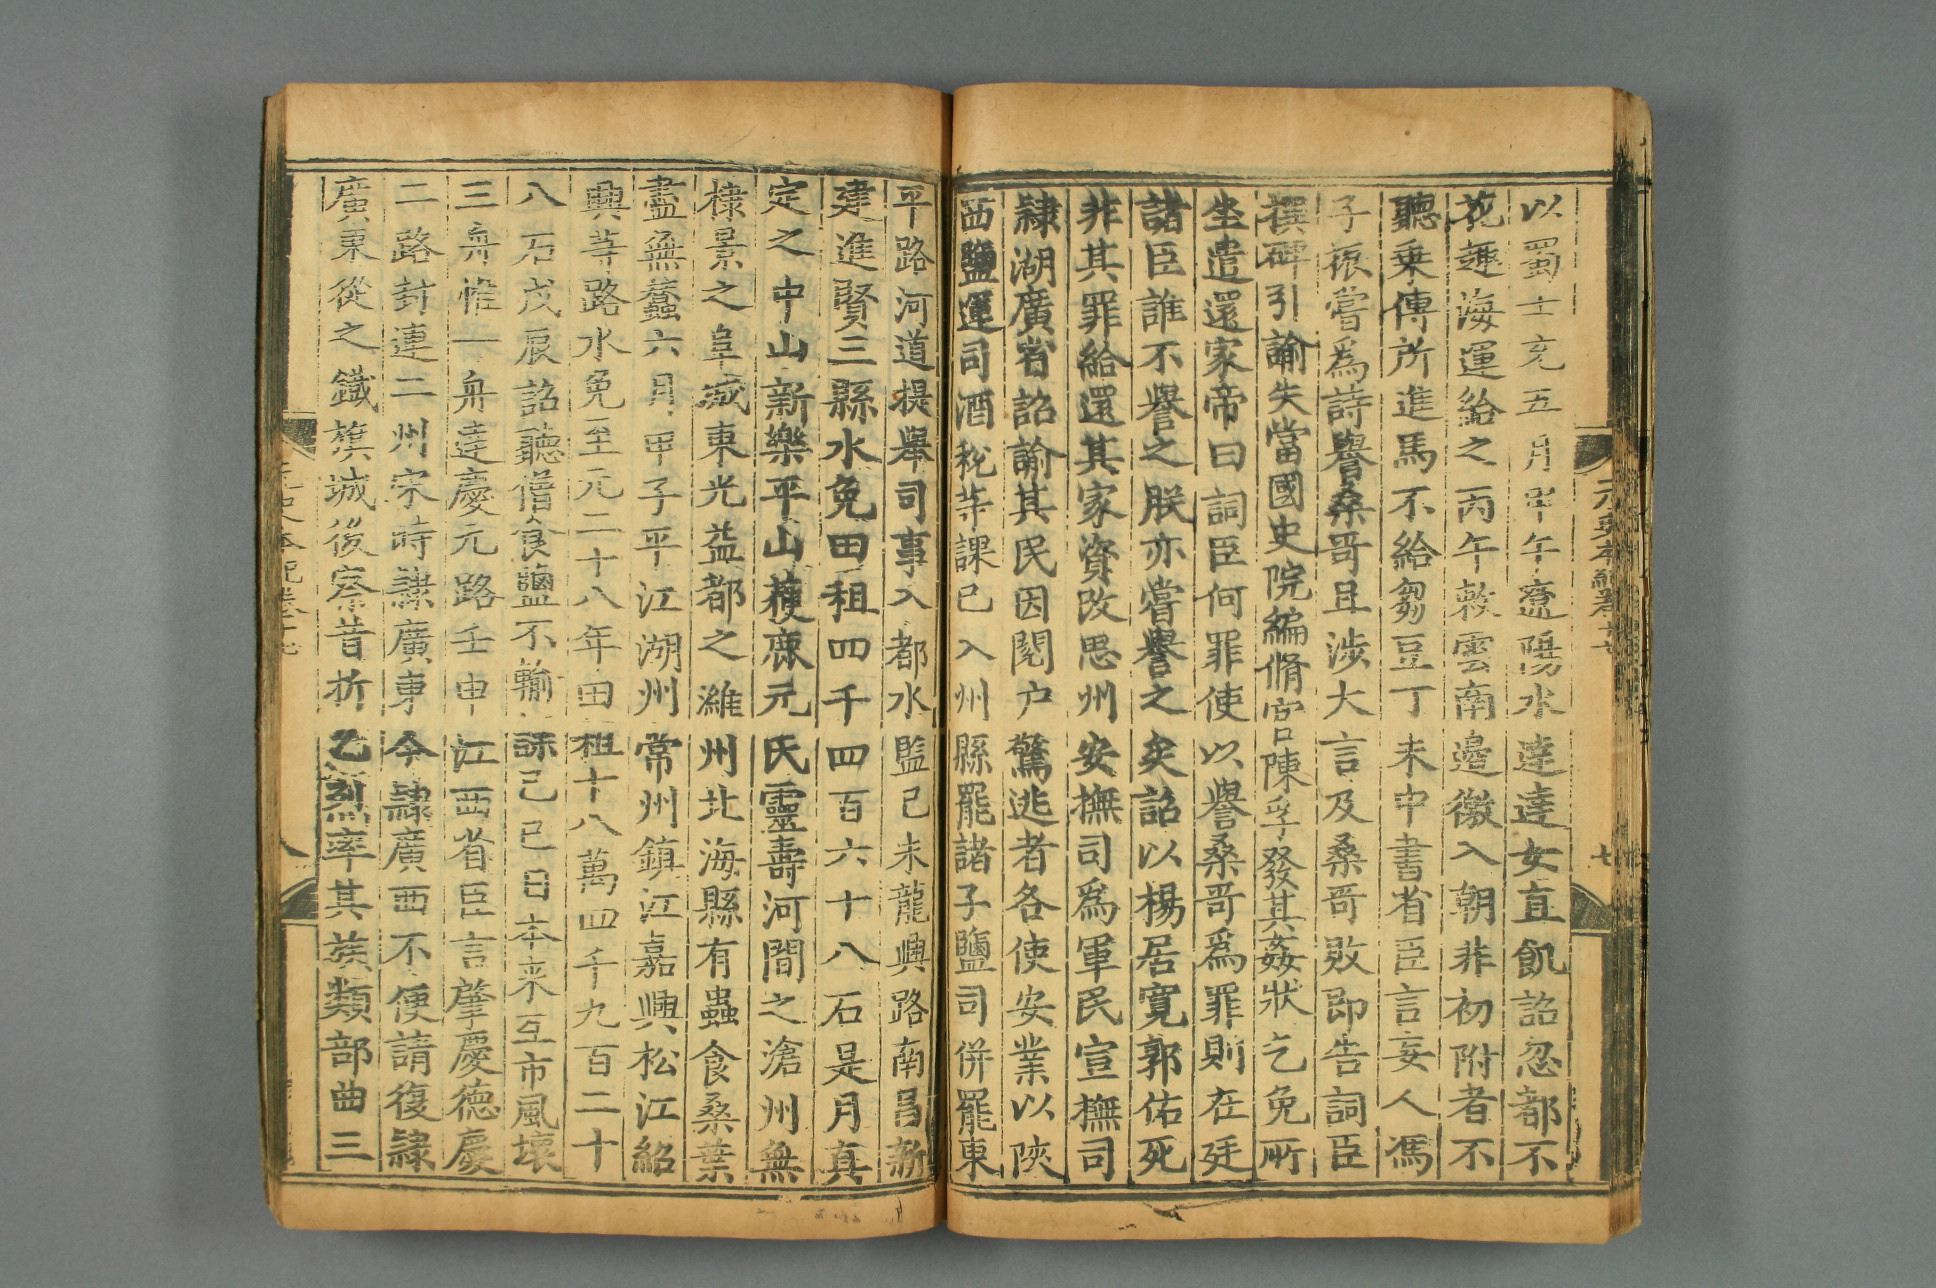 以蜀士充五月甲午遼陽水達達女直飢詔忽都不
花趣海運給之丙午敕雲南邊徼入朝非初附者不
聽乗傳所進馬不給芻豆丁未中書省臣言妄人馮
子振嘗爲詩譽桑哥且涉大言及桑哥敗即告詞臣
撰碑引諭失當國史院編脩官陳孚發其姦狀乞免所
坐遣還家帝曰詞臣何罪使以譽桑哥爲罪則在廷
諸臣誰不譽之朕亦嘗譽之矣詔以楊居寛郭佑死
非其罪給還其家資改思州安撫司爲軍民宣撫司
隷湖廣省詔諭其民因閱户驚逃者各使安業以陜
西鹽運司酒稅等課已入州縣罷諸子鹽司併罷東
元史本紀卷十七
七
平路河道提舉司事入都水監己未龍興路南昌新
建進賢三縣水免田租四千四百六十八石是月真
定之中山新樂平山獲鹿元氏靈壽河間之滄州無
棣景之阜城東光益都之濰州北海縣有蟲食桑葉
盡無蠶六月甲子平江湖州常州鎮江嘉興松江紹
興等路水免至元二十八年田租十八萬四千九百二十
八石戊辰詔聽僧食鹽不輸課己巳日本来互市風壞
三舟惟一舟達慶元路壬申江西省臣言肇慶德慶
二路封連二州宋時隷廣東今隷廣西不便請復隷
廣東從之鐵旗城後察昔折乙烈率其族類部曲三
元史本紀卷十七
八